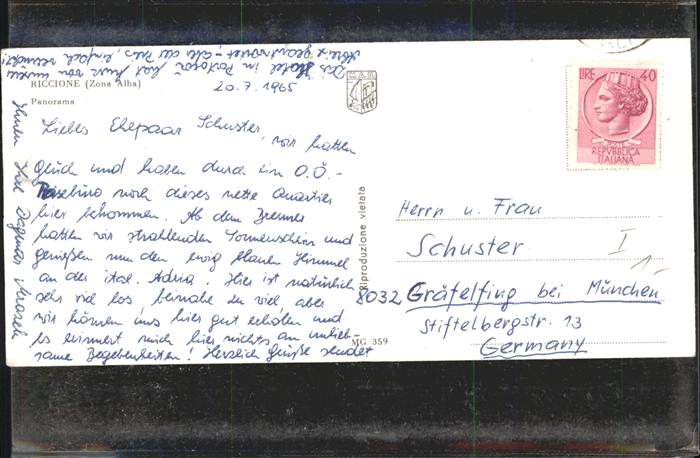 RICCIONE (Zona Alba)
Panorama
20.7.1965
Liebes Ehepaar Schuster, wir hatten
Glück und haben durch ein O.Ö.-
Reisebüro noch dieses nette Quartier
hier bekommen. Ab dem Brenner
hatten wir strahlenden Sonnenschein und
genießen nun den ewig blauen Himmel
an der ital. Adria. Hier ist natürlich
sehr viel los, beinahe zu viel aber
wir können uns hier gut erholen und
es erinnert mich hier nichts an unlieb-
same Begebenheiten! Herzliche Grüße sendet
Ihnen Ihre Dagmar
Das Hotel in hat von unsere
Riproduzione vietata
MG 359
LIRE 40
REPVBBLICA
ITALIANA
Herrn u. Frau
Schuster
I
8032 Gräfelfing bei München
Stiftelbergstr. 13
Germany